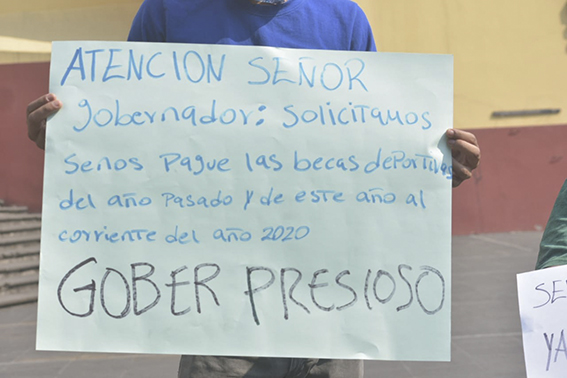 ATENCION SEÑOR
gobernador: solicitamos
senos pague las becas deportivas
del año pasado y de este año al
corriente del año 2020
GOBER PRESIOSO
SE
YA